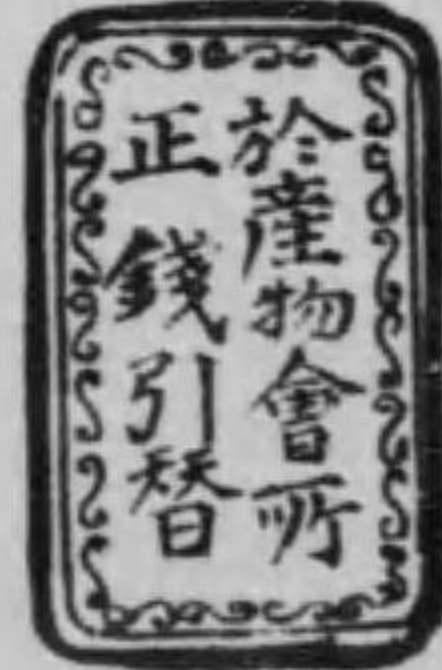 於産物會所
正錢引替